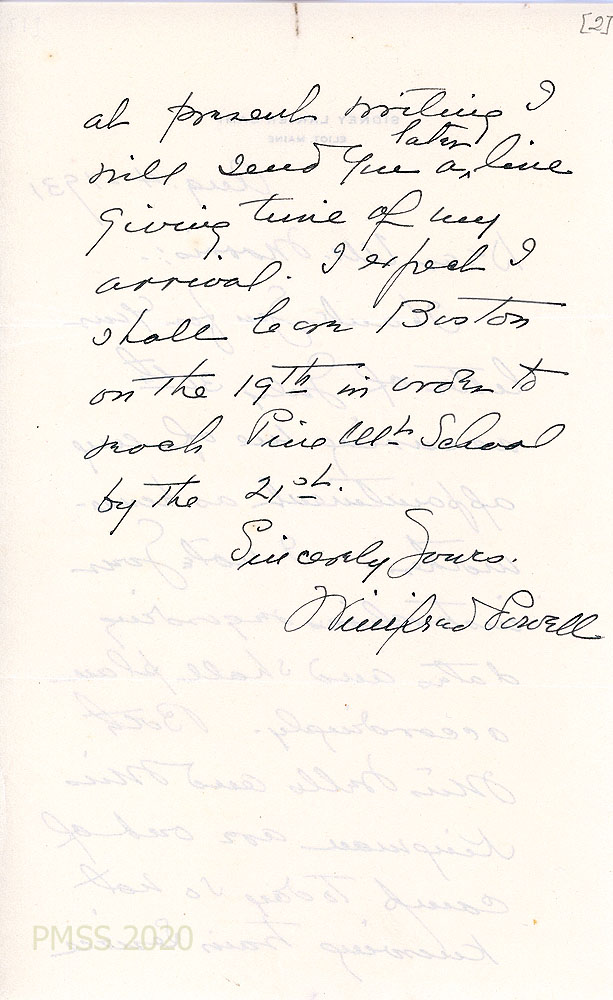 [2]
at present writing I
will send you a later line
giving time of my
arrival. I expect I
shall leave Boston
on the 19th in order to
reach Pine Mt School
by the 21st.
Sincerely Yours.
Winifred Powell
PMSS 2020